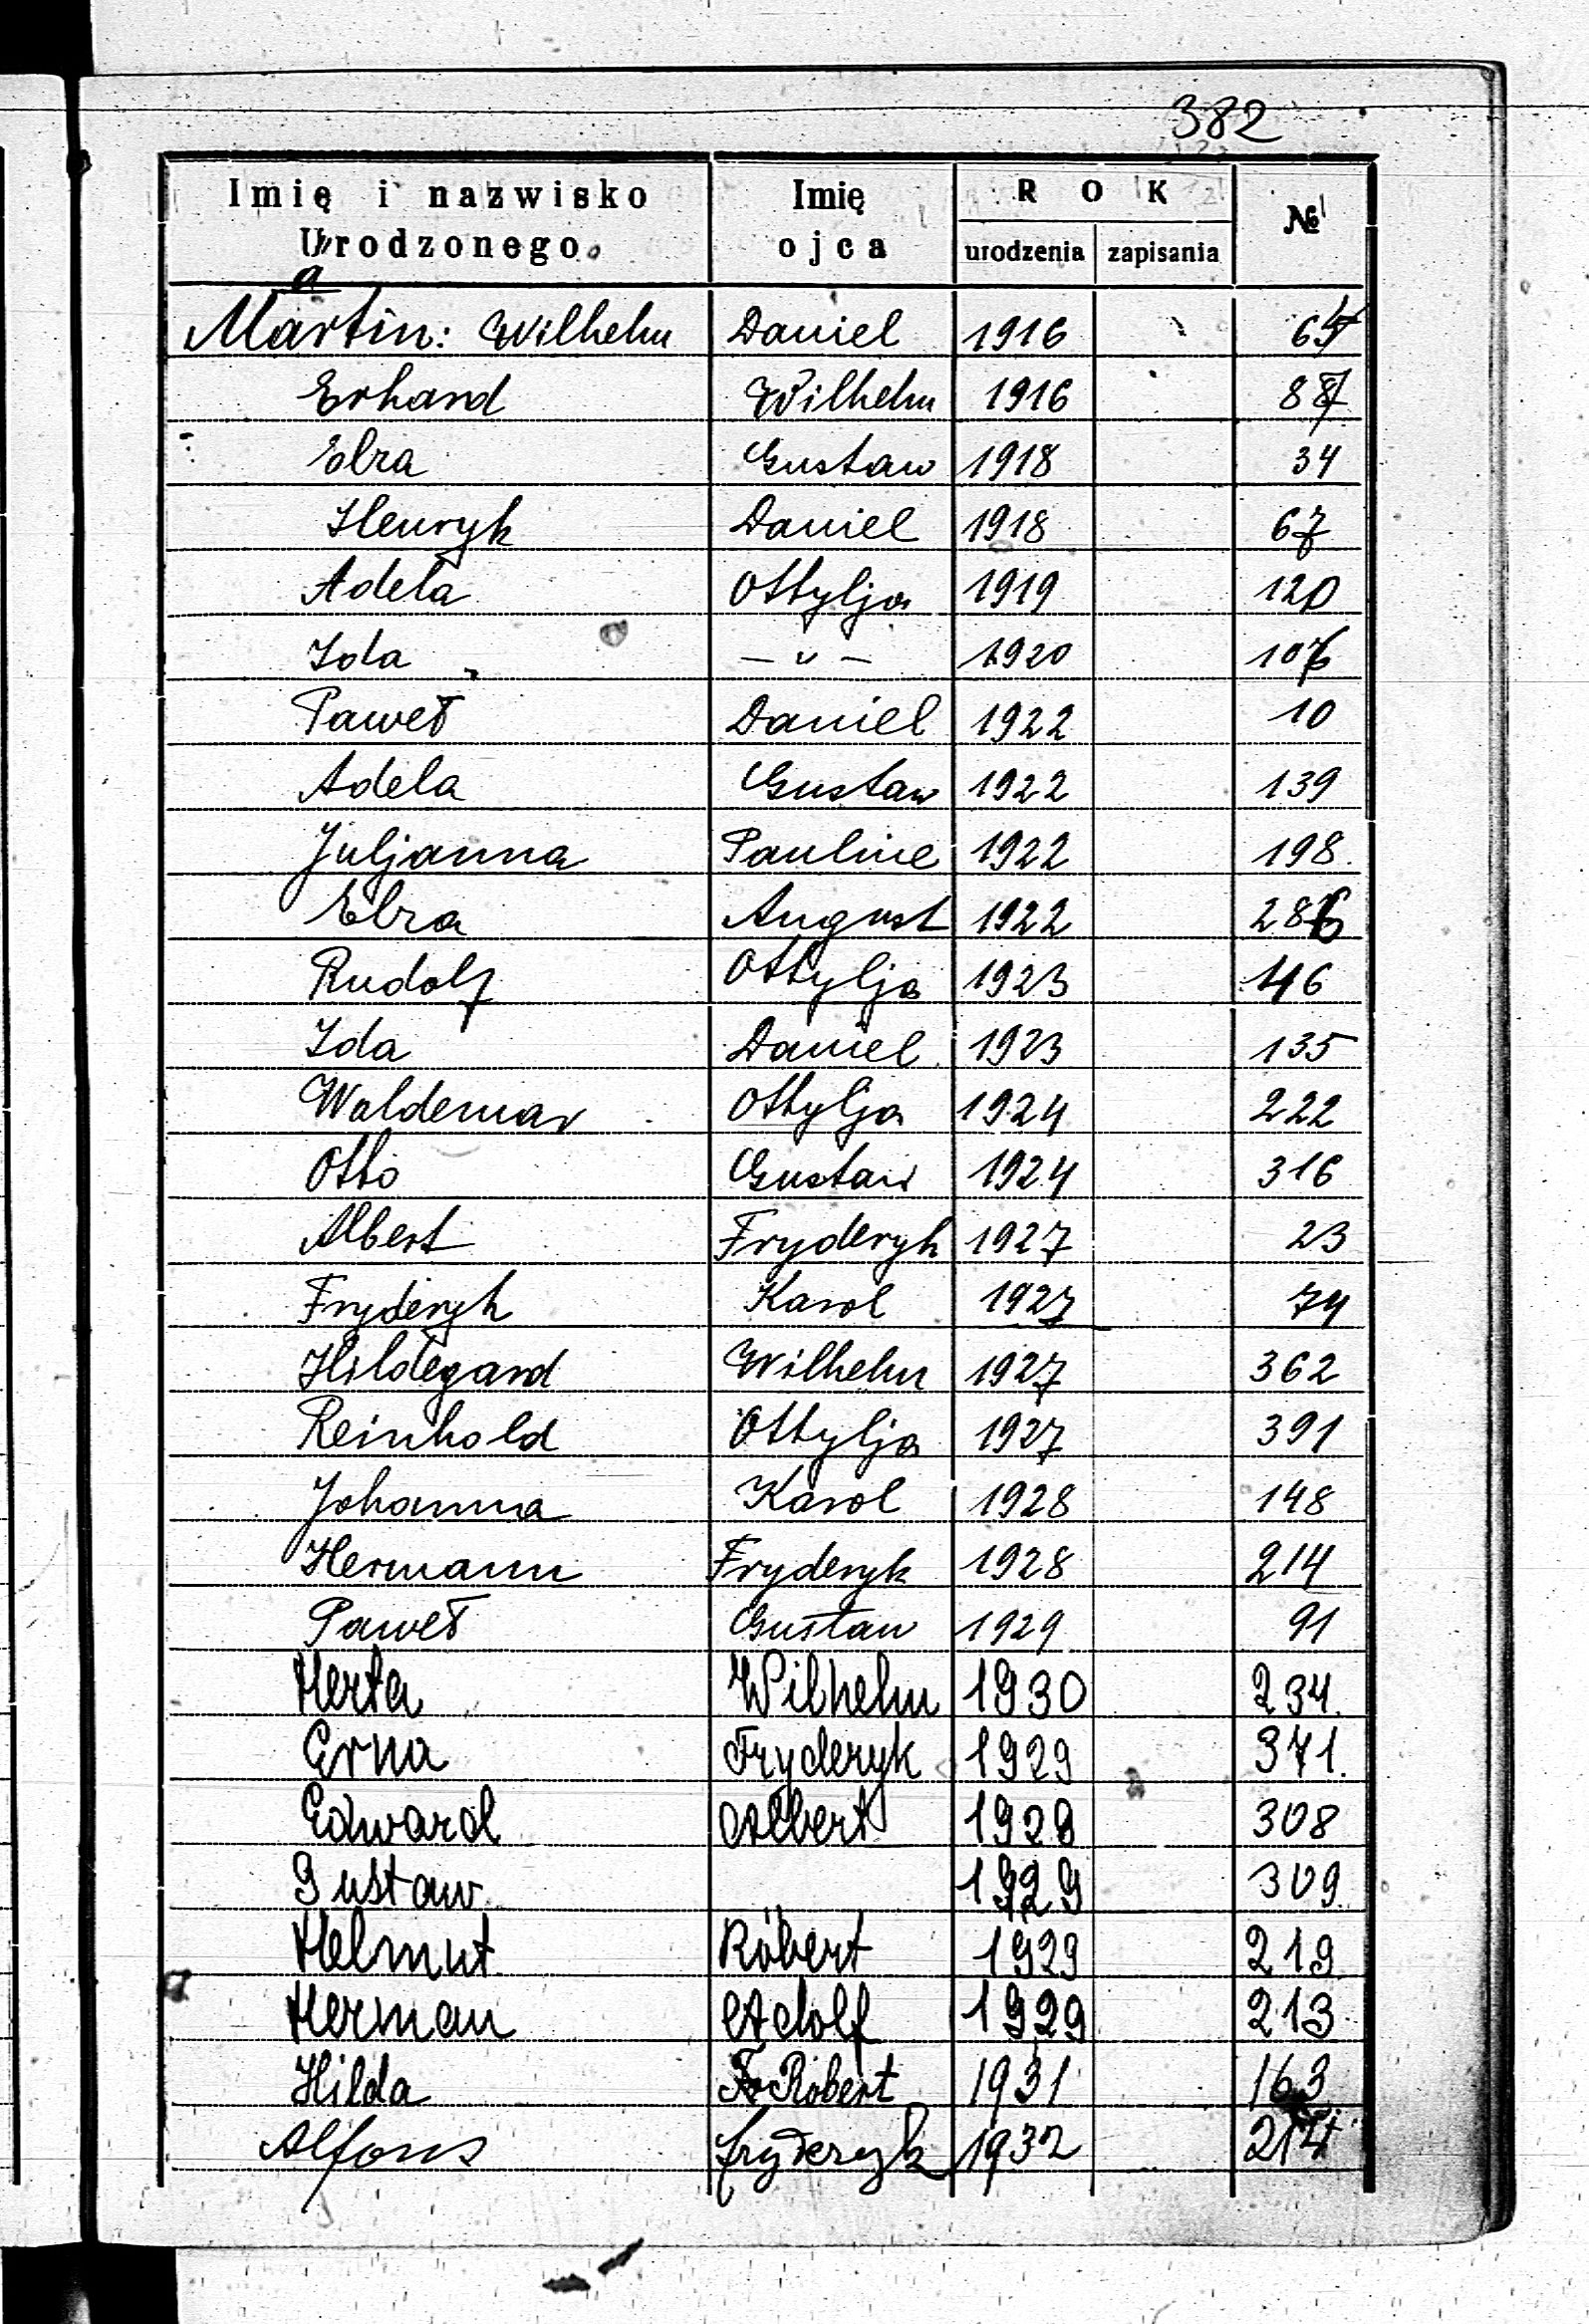 382
Imię i nazwisko Urodzonego. Imię ojca ROK urodzenia zapisania №
a
Martin: Wilhelm Daniel 1916
Erhard Wilhelm 1916 87
Elza Gustaw 1918 34
Henryk Daniel 1918 67
Adela Ottylja 1919 120
Ida — " — 1920 106
Paweł Daniel 1922 10
Adela Gustaw 1922 139
Juljanna Pauline 1922 198.
Elza August 1922 286
Rudolf Ottylja 1923
Ida Daniel 1923 135
Waldemar Ottylja 1924 222
Otto Gustaw 1924 316
Albert Fryderyk 1927 23
Fryderyk Karol 1927 74
Hildegard Wilhelm 1927 362
Reinhold Ottylja 1927 391
Johanna Karol 1928 148
Hermann Fryderyk 1928 214
Paweł Gustaw 1929 91
Herta Wilhelm 1930 234.
Erna Fryderyk 1929 371.
Edward Albert 1929 308
Gustaw 1929 309.
Helmut Robert 1929 219
Herman Adolf 1929 213
Hilda Robert 1931 163
Alfons fryderyk 1932 214